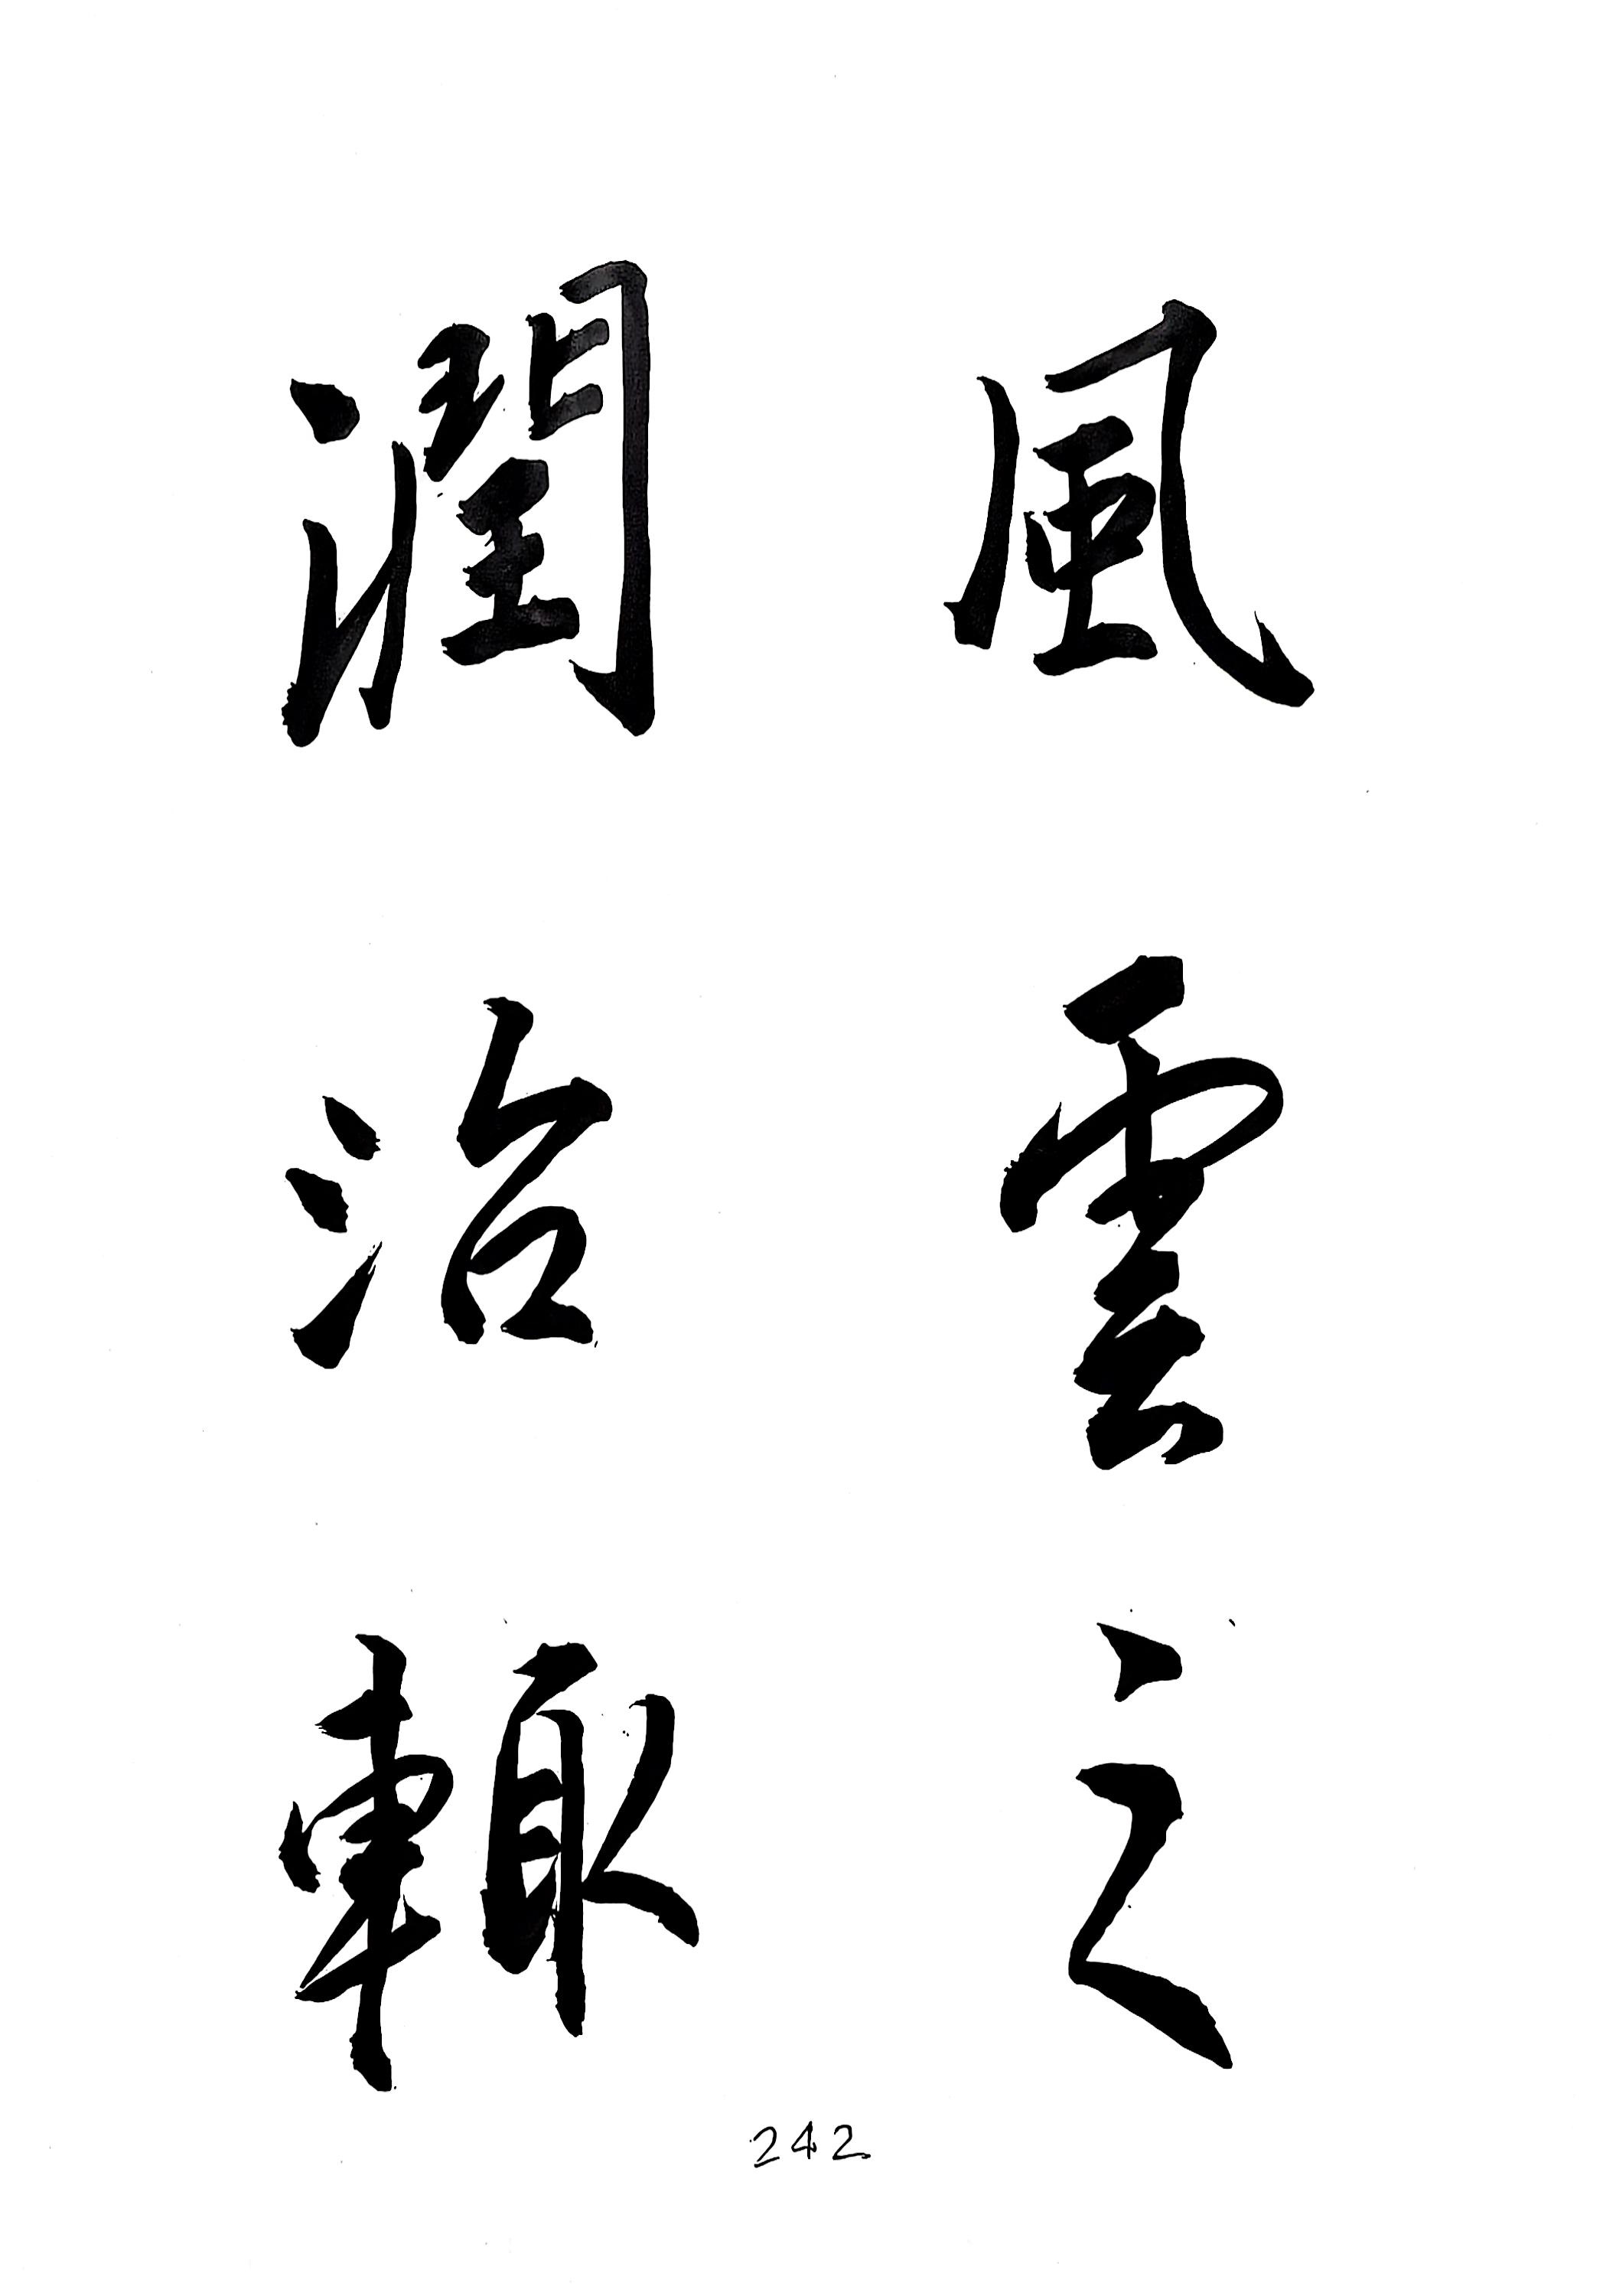 風雲之
潤治輙
242